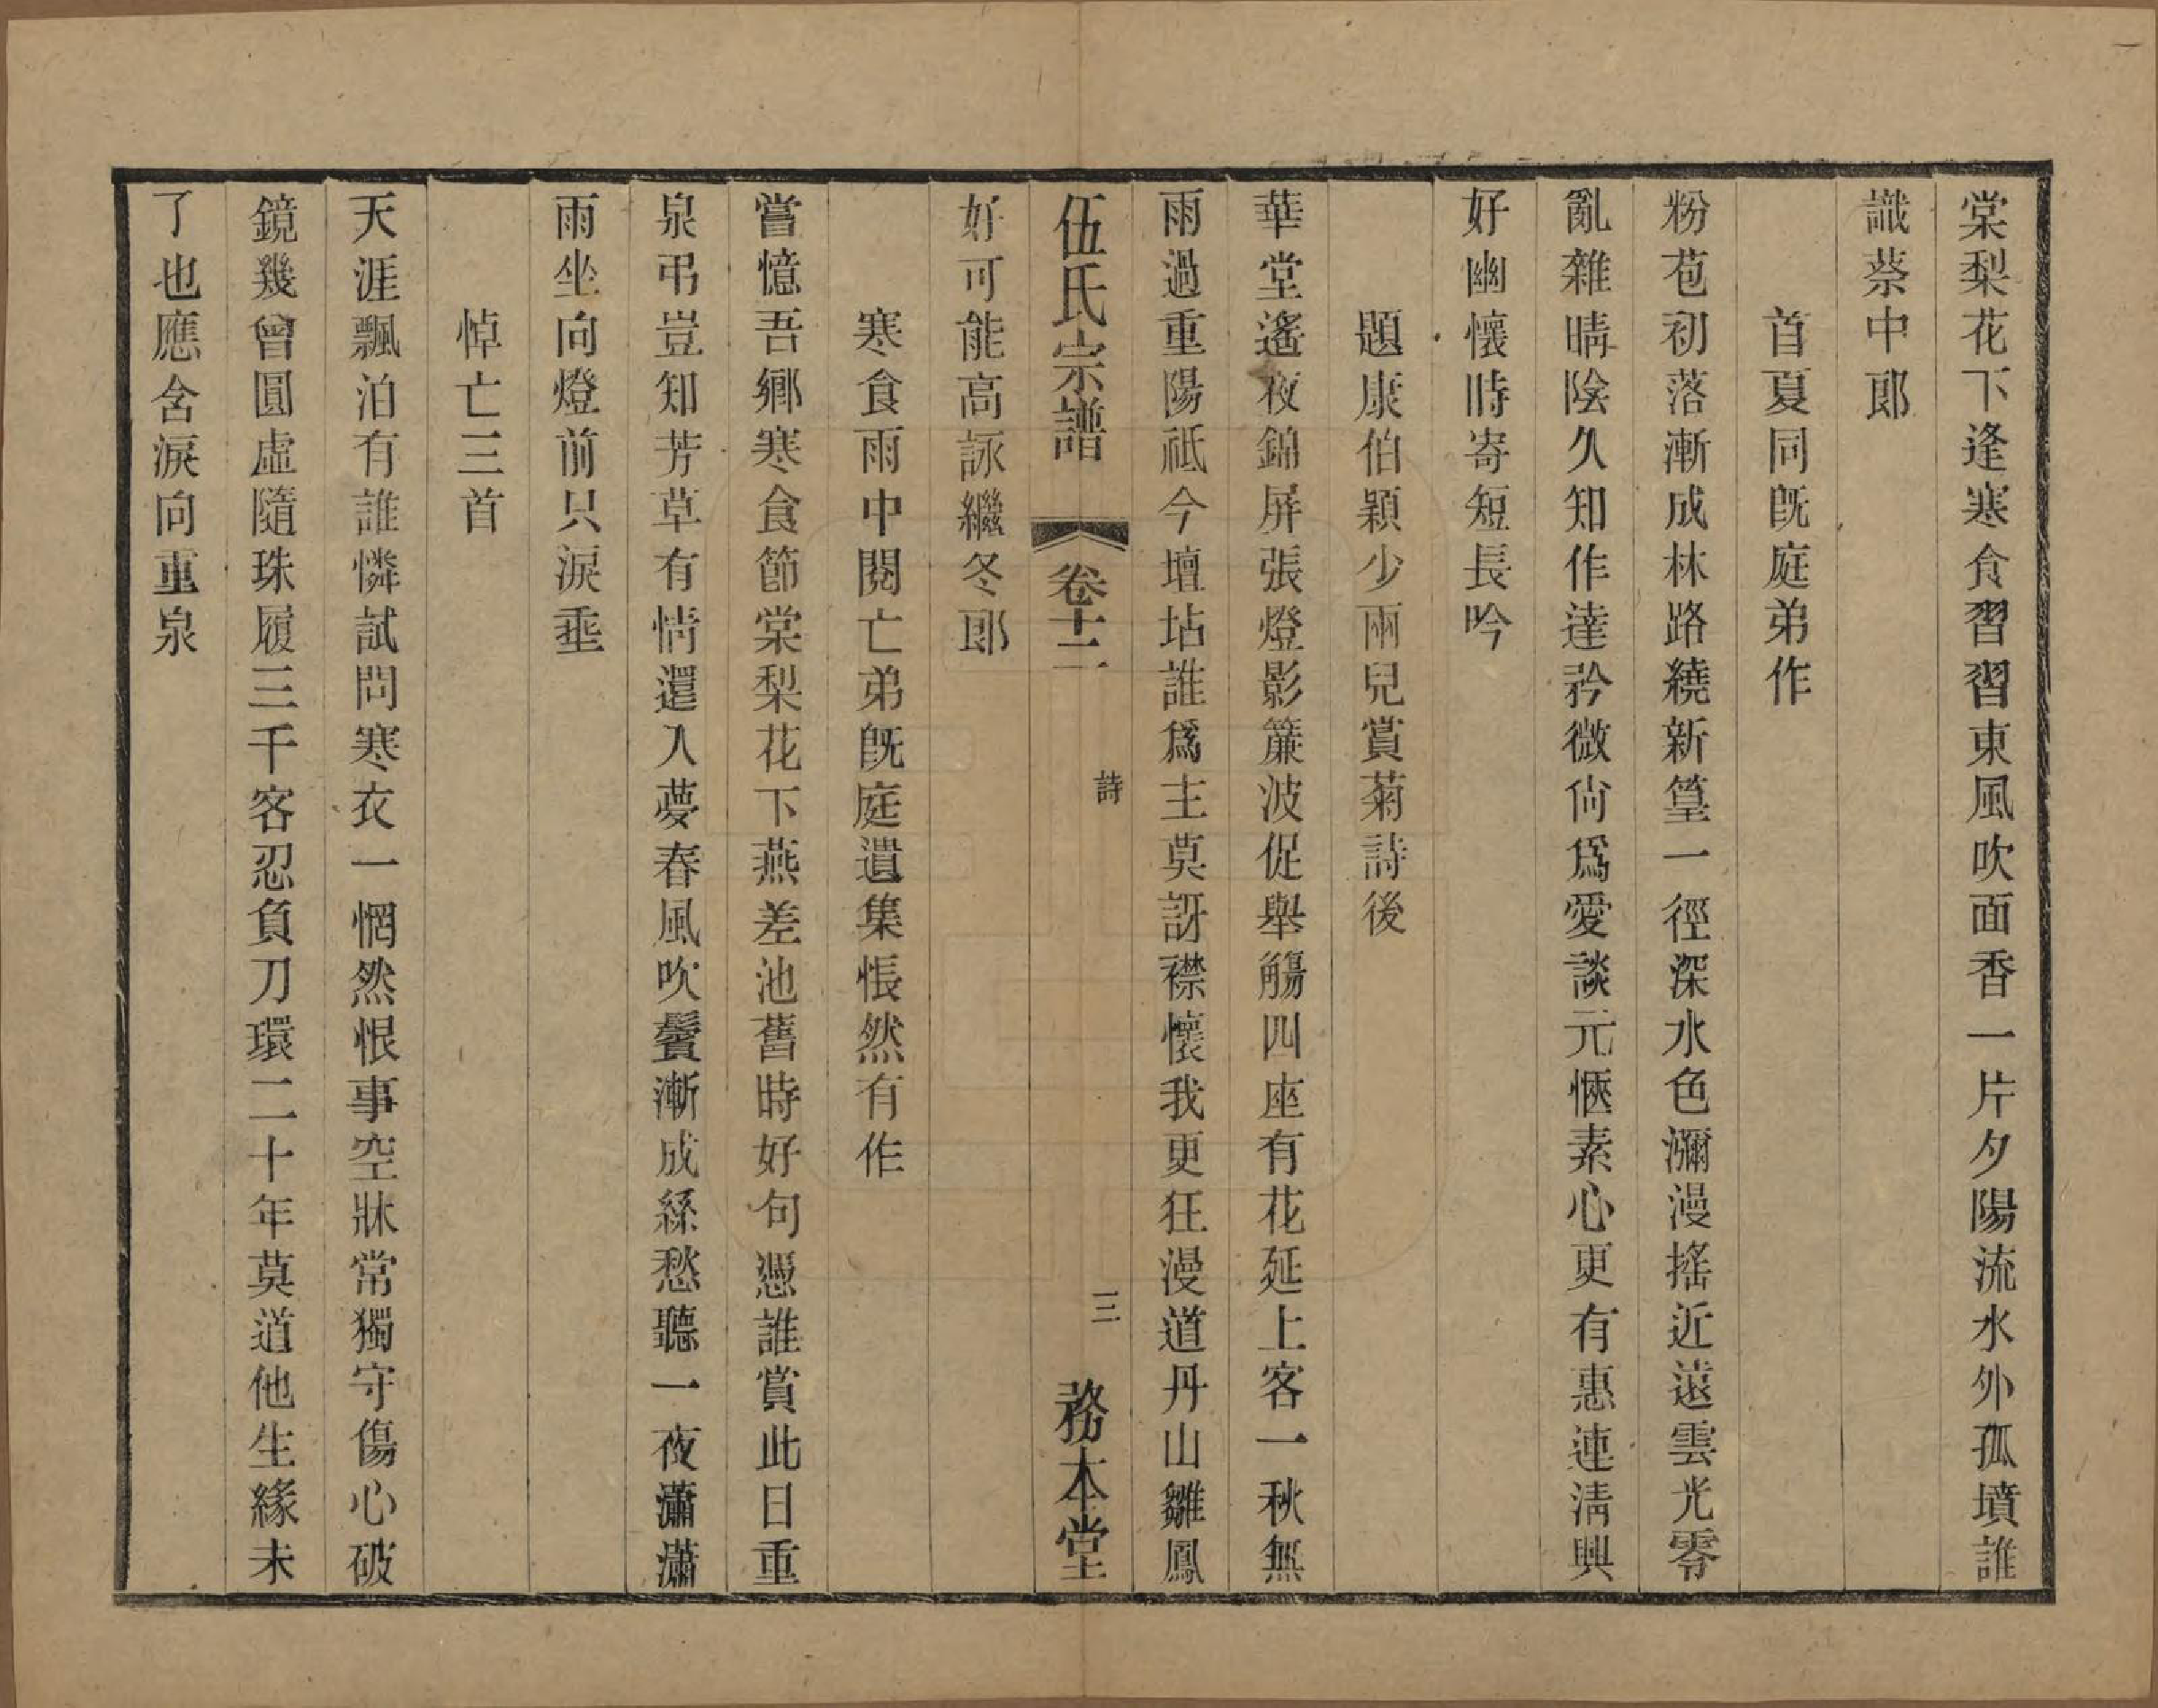 棠梨花下逢寒食習習東風吹面香一片夕陽流水外孤墳誰
識蔡中郎
首夏同旣庭弟作
粉苞初落漸成林路繞新篁一徑深水色瀰漫搖近遠雲光零
亂雜晴陰久知作達矜微尙爲愛談元愜素心更有惠連淸興
好幽懷時寄短長吟
題康伯穎少兩兒賞菊詩後
華堂遙夜錦屏張燈影簾波促舉觴四座有花延上客一秋無
雨過重陽祗今壇坫誰爲主莫訝襟懷我更狂漫道丹山雛鳳
伍氏宗譜
卷十二
詩
三
務本堂
好可能高詠繼冬郎
寒食雨中閱亡弟旣庭遺集悵然有作
嘗憶吾鄉寒食節棠梨花下燕差池舊時好句憑誰賞此日重
泉弔豈知芳草有情還入夢春風吹鬢漸成絲愁聽一夜瀟瀟
雨坐向燈前只淚垂
悼亡三首
天涯飄泊有誰憐試問寒衣一惘然恨事空牀常獨守傷心破
鏡幾曾圓虛隨珠履三千客忍負刀環二十年莫道他生緣未
了也應含淚向重泉